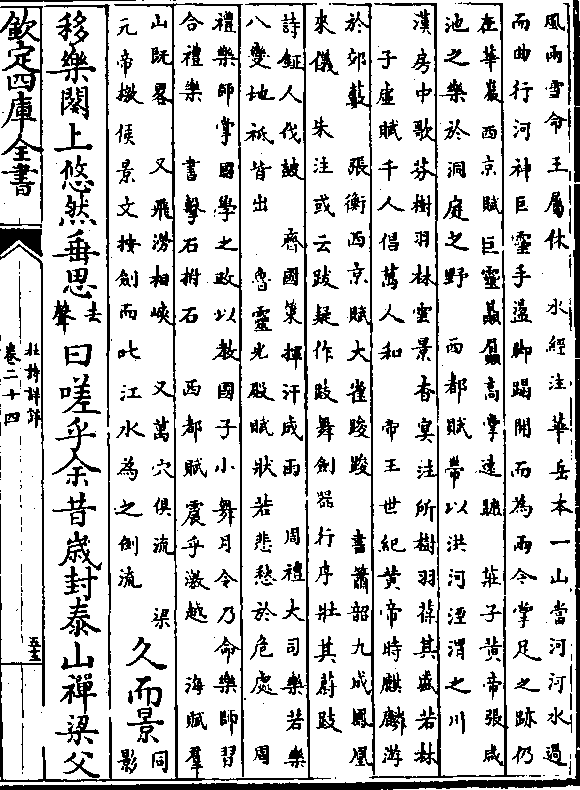 風雨雪命王屬休　水經注華岳本一山當河河水過
而曲行河神巨靈手盪脚蹋開而為兩今掌足之跡仍
在華巖西京賦巨靈贔屭高掌遠蹠　莊子黄帝張咸
池之樂於洞庭之野　西都賦帶以洪河涇渭之川
漢房中歌芬樹羽林雲景杳冥注所樹羽葆其盛若林
子虚賦千人倡萬人和　帝王世紀黄帝時麒麟游
於郊藪　張衡西京賦大雀踆踆　書簫韶九成鳳凰
來儀　朱注或云跋疑作跂舞劍器行序壯其蔚跂
詩鉦人伐鼓　齊國策揮汗成雨　周禮大司樂若樂
八變地祇皆出　魯靈光殿賦狀若悲愁於危處　周
禮樂師掌國學之政以教國子小舞月令乃命樂師習
合禮樂　書擊石拊石　西都賦震乎激越　海賦羣
山既略　又飛澇相磢　又萬穴俱流　梁
元帝檄侯景文按劍而叱江水為之倒流
久而景同影
移樂闋上悠然垂思去聲曰嗟乎余昔歲封泰山禪梁父
欽定四庫全書
杜詩詳註
卷二十四
五十三